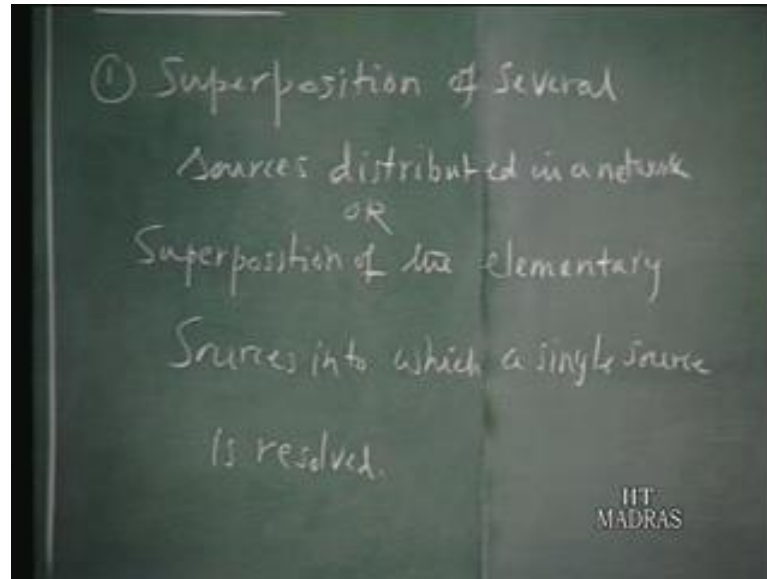 ① Superposition of Several
Sources distributed in a network
OR
Superposition of the elementary
Sources into which a single source
is resolved.
IIT
MADRAS